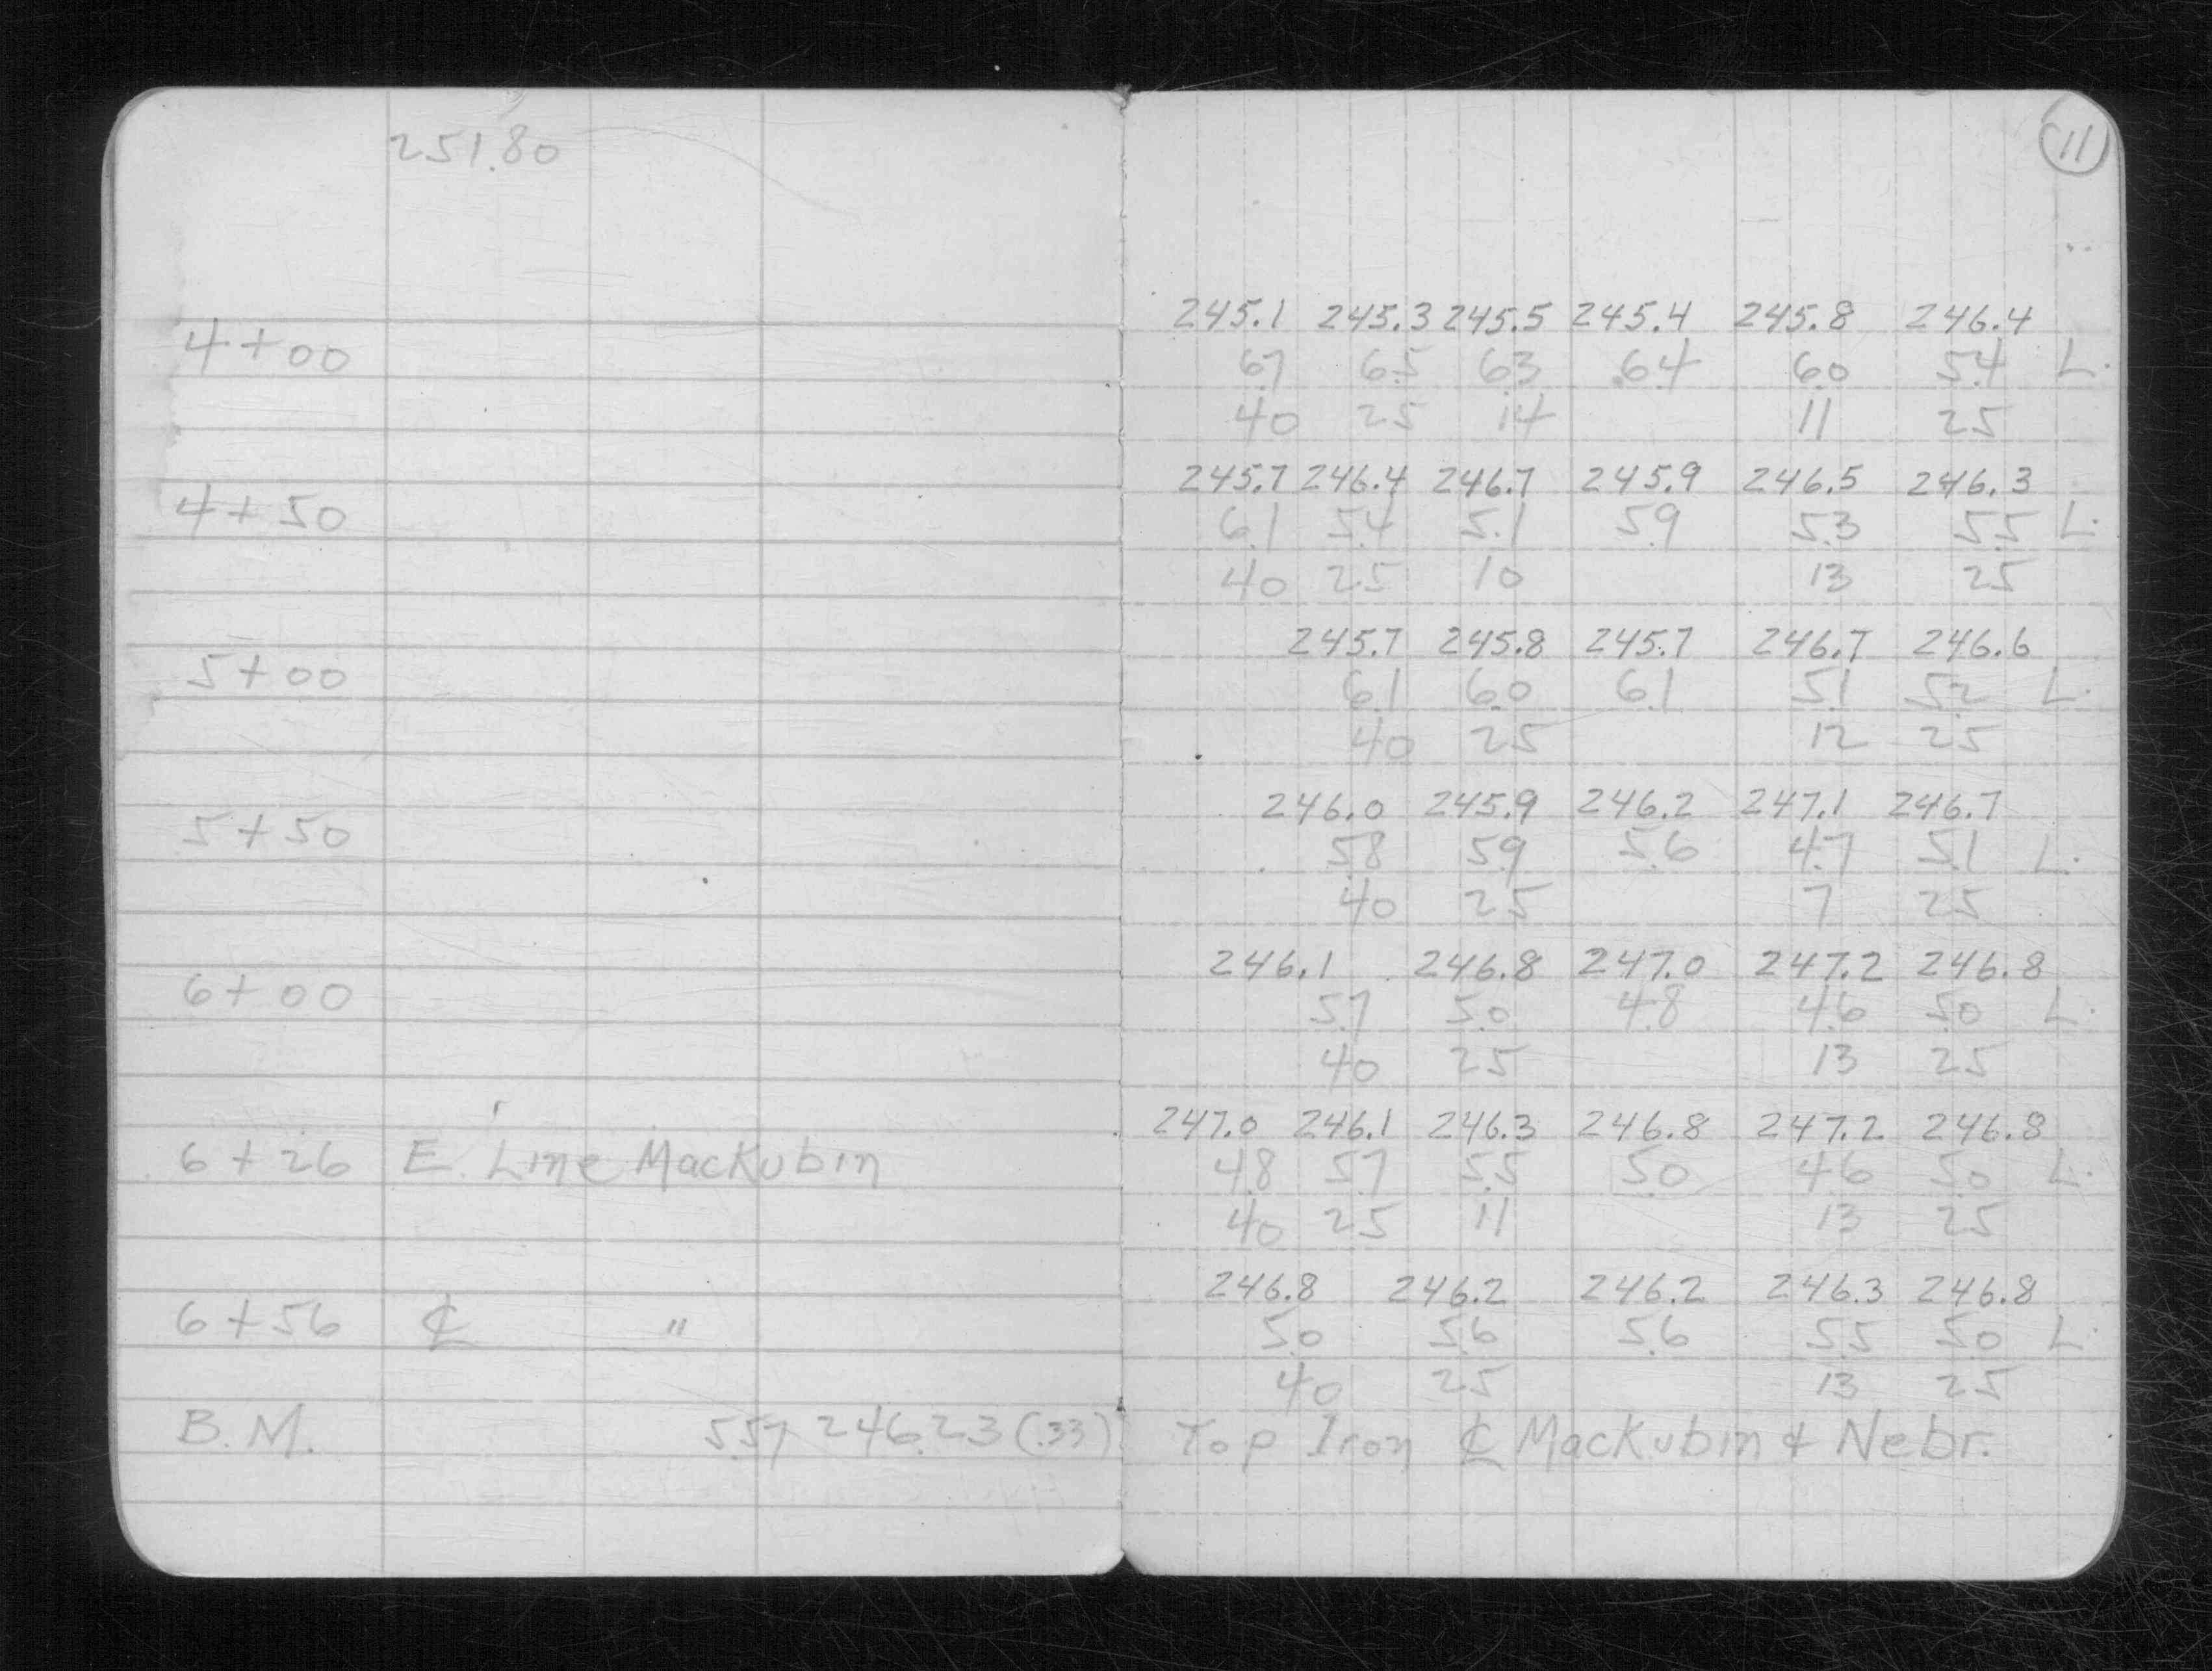 251.80
11
245.1 245.3 245.5 245.4 245.8 246.4
4+00 6.7 6.5 6.3 6.4 6.0 5.4 L.
40 25 14 11 25
245.7 246.4 246.7 245.9 246.5 246.3
4+50 6.1 5.4 5.1 5.9 5.3 5.5 L.
40 25 10 13 25
245.7 245.8 245.7 246.7 246.6
5+00 6.1 6.0 6.1 5.1 5.2 L.
40 25 12 25
246.0 245.9 246.2 247.1 246.7
5+50 5.8 5.9 5.6 4.7 5.1 L.
40 25 7 25
246.1 246.8 247.0 247.2 246.8
6+00 5.7 5.0 4.8 4.6 5.0 L.
40 25 13 25
247.0 246.1 246.3 246.8 247.2 246.8
6+26 E. Line Mackubin 4.8 5.7 5.5 5.0 4.6 5.0 L.
40 25 11 13 25
246.8 246.2 246.2 246.3 246.8
6+56 ℄ " 5.0 5.6 5.6 5.5 5.0 L.
40 25 13 25
B.M. 5.57 246.23 (.33) Top Iron ℄ Mackubin & Nebr.